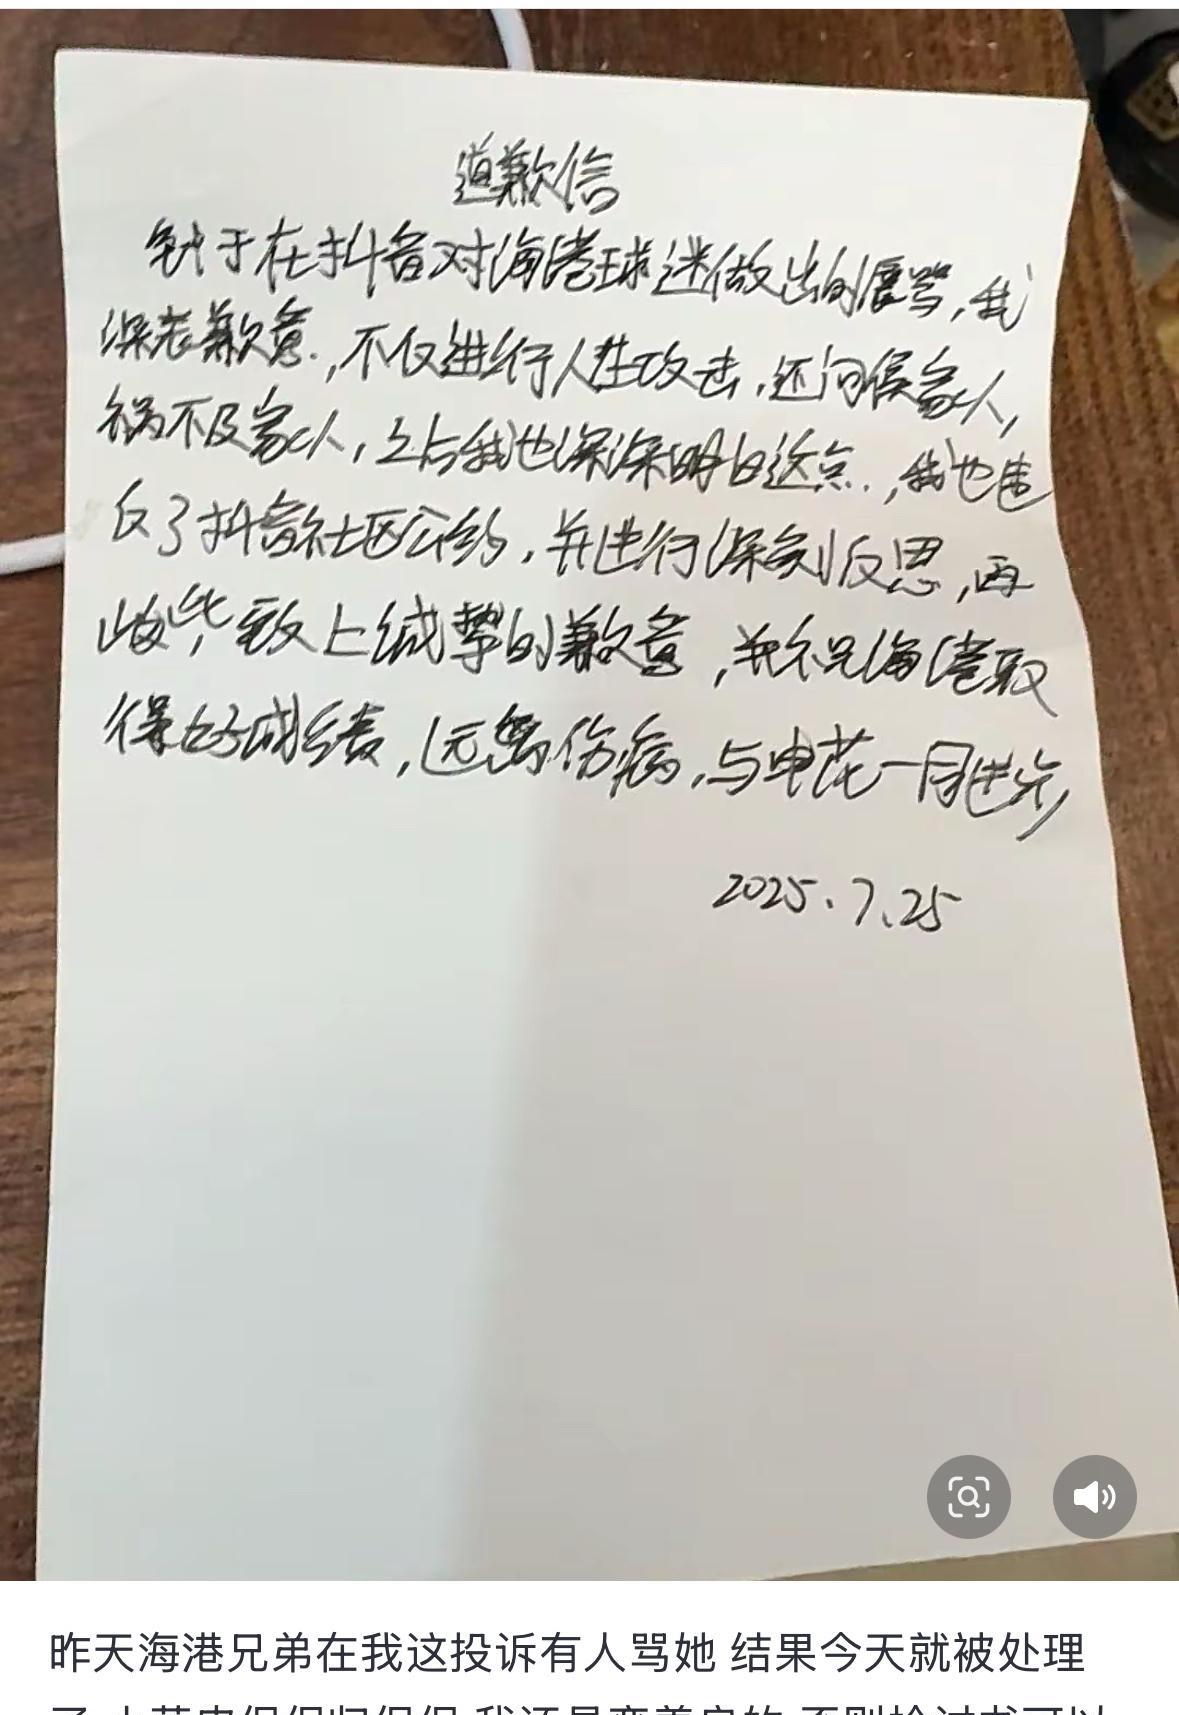 道歉信
针于在抖音对海港球迷做出的辱骂,我
深表歉意.,不仅进行人生攻击,还问候家人,
祸不及家人,之后我也深深明白这点.,我也违
反了抖音社区公约,并进行深刻反思,再
此,致上诚挚的歉意,并祝海港取
得好成绩,远离伤病,与申花一同进步
2025.7.25
昨天海港兄弟在我这投诉有人骂她 结果今天就被处理